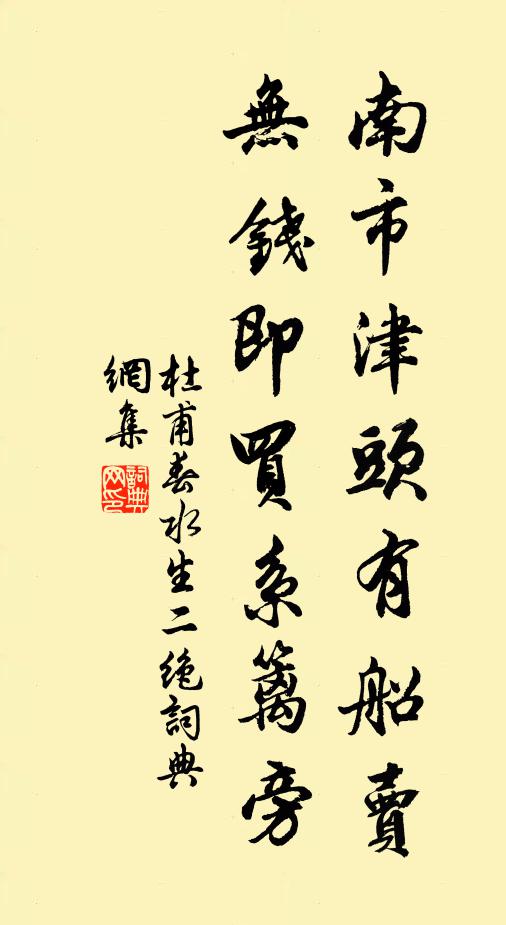 南市津頭有船賣
無錢即買系籬旁
杜甫春水生二绝詞典
網集